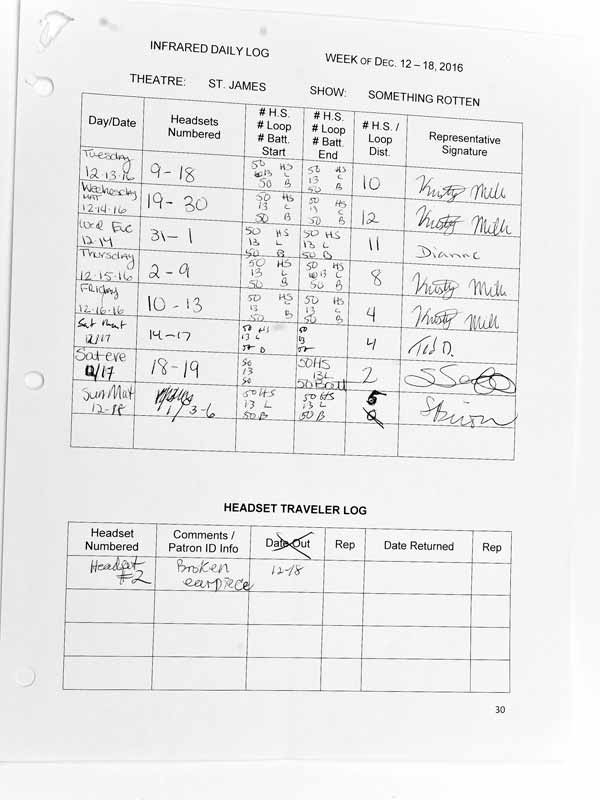 INFRARED DAILY LOG
WEEK OF DEC. 12 – 18, 2016
THEATRE: ST. JAMES SHOW: SOMETHING ROTTEN
Day/Date
Headsets Numbered
# H.S. # Loop # Batt. Start
# H.S. # Loop # Batt. End
# H.S. / Loop Dist.
Representative Signature
Tuesday 12-13-16
9-18
50 HS
13 L
50 B
50 HS
13 L
50 B
10
Kristy Mell
Wednesday MAT 12-14-16
19-30
50 HS
13 L
50 B
50 HS
13 L
50 B
12
Kristy Mell
Wed Eve 12-14
31-1
50 HS
13 L
50 B
50 HS
13 L
50 B
11
Dianne
Thursday 12-15-16
2-9
50 HS
13 L
50 B
50 HS
13 L
50 B
8
Kristy Mell
Friday 12-16-16
10-13
50 HS
13 L
50 B
50 HS
13 L
50 B
4
Kristy Mell
Sat Mat 12/17
14-17
50 HS
13 L
50 B
50
13
50
4
Ted D.
Sat eve 12/17
18-19
50
13
50
50 HS
13 L
50 Batt
2
Sun Mat 12-18
1/3-6
50 HS
13 L
50 B
50 HS
13 L
50 B
5
HEADSET TRAVELER LOG
Headset Numbered
Comments / Patron ID Info
Date Out
Rep
Date Returned
Rep
Headset #2
Broken earpiece
12-18
30